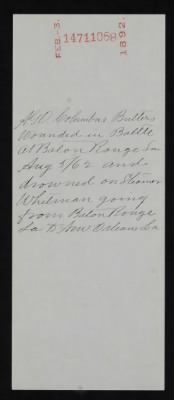 FEB-3. 1471106 1892.
Columbus Butler
Wounded in Battle
at Baton Rouge La
Aug 5/62 and
drowned on Steamer
Whitman going
from Baton Rouge
La to New Orleans La